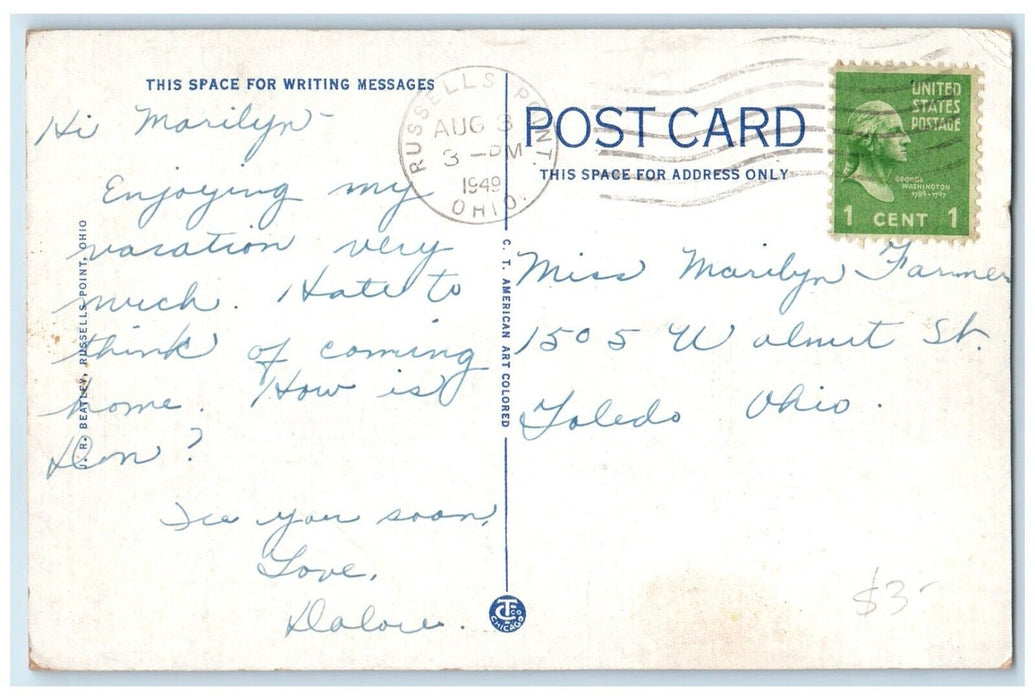 THIS SPACE FOR WRITING MESSAGES
Hi Marilyn-
Enjoying my
vacation very
much. Hate to
think of coming
home. How is
Don?
See you soon,
Love,
J. R. BEATLEY, RUSSELLS POINT, OHIO
C. T. AMERICAN ART COLORED
CT CO
CHICAGO
RUSSELLS POINT.
AUG 3
3 -PM
1949
OHIO.
POST CARD
THIS SPACE FOR ADDRESS ONLY
UNITED
STATES
POSTAGE
GEORGE
WASHINGTON
1789-1797
1 CENT 1
Miss Marilyn Farmer
1505 Walnut St.
Toledo Ohio.
$3-